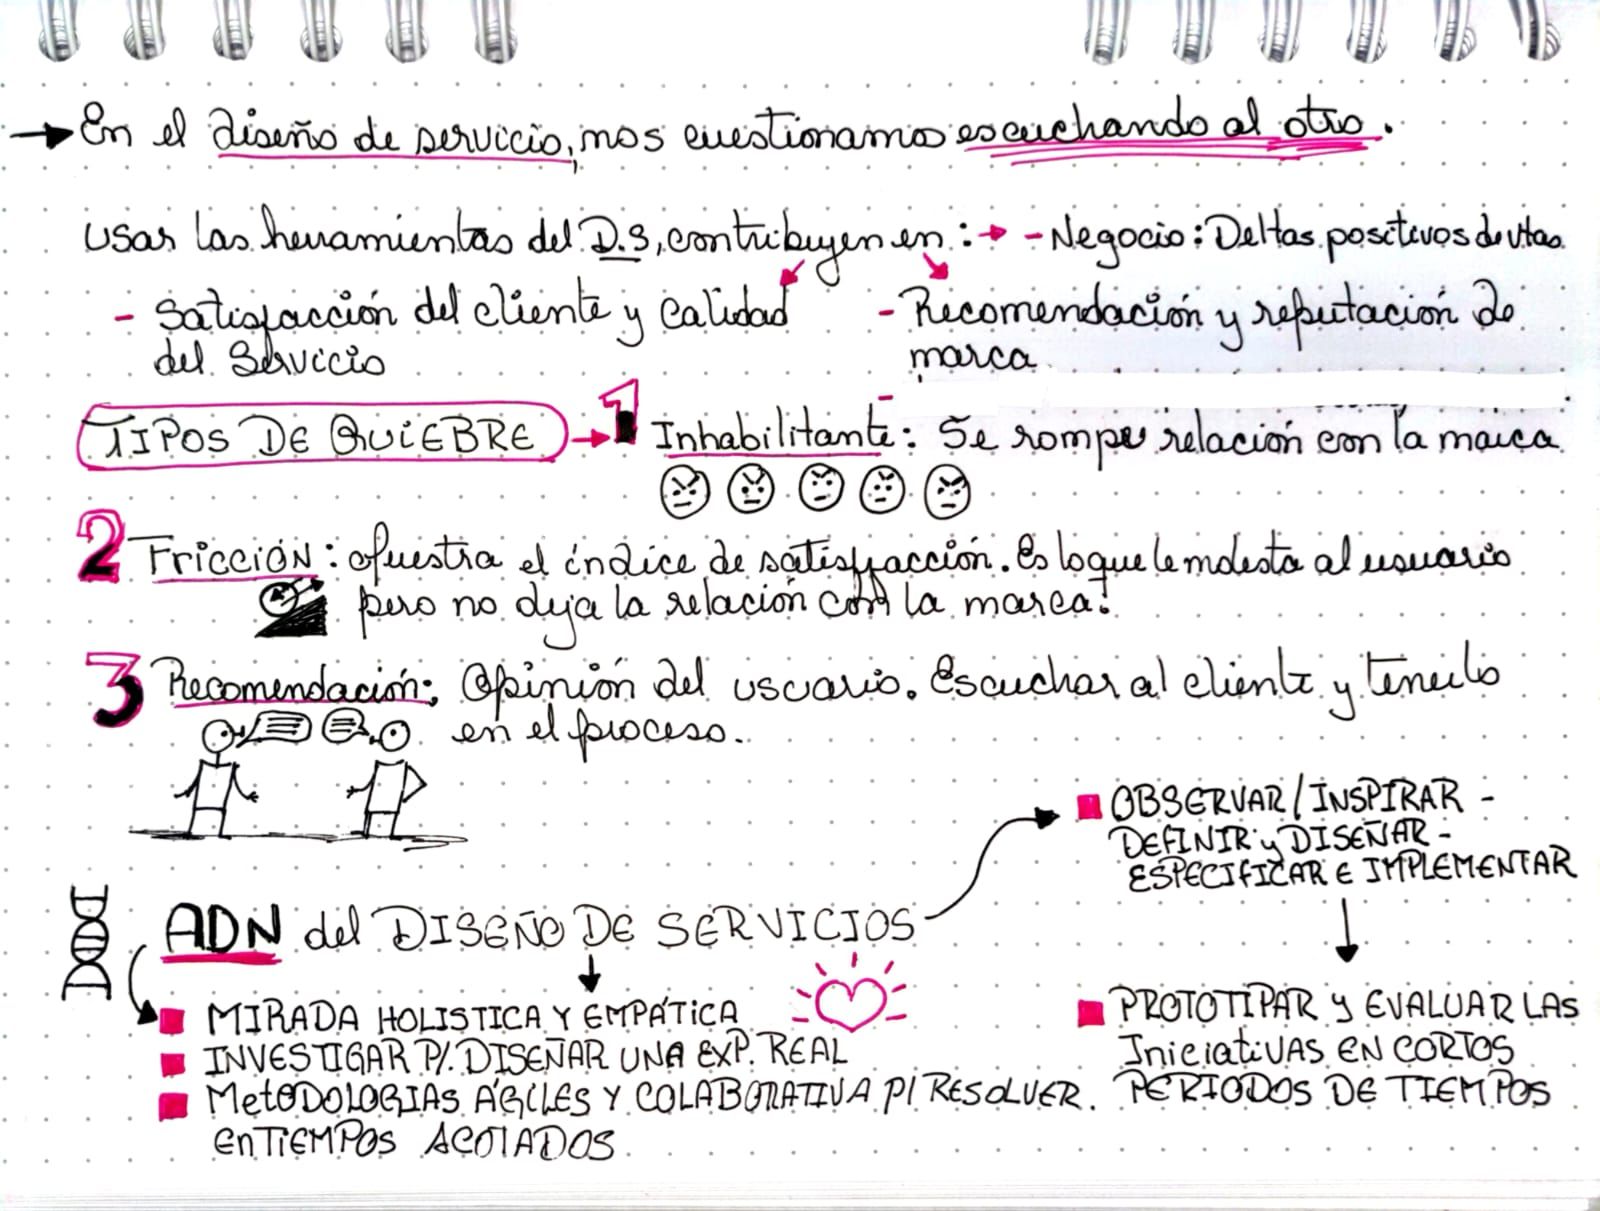 En el diseño de servicio, nos cuestionamos escuchando al otro.
Usar las herramientas del D.S, contribuyen en: - Negocio: Deltas positivos de vtas.
- Satisfacción del cliente y Calidad
del Servicio
- Recomendación y reputación de
marca
TIPOS DE QUIEBRE
1 Inhabilitante: Se rompe relación con la marca
2 Fricción: Muestra el índice de satisfacción. Es lo que le molesta al usuario
pero no deja la relación con la marca.
3 Recomendación: Opinión del usuario. Escuchar al cliente y tenerlo
en el proceso.
ADN del DISEÑO DE SERVICIOS
MIRADA HOLISTICA Y EMPÁTICA
INVESTIGAR P/. DISEÑAR UNA EXP. REAL
METODOLOGIAS ÁGILES Y COLABORATIVA P/ RESOLVER.
EN TIEMPOS ACOTADOS.
OBSERVAR / INSPIRAR -
DEFINIR y DISEÑAR -
ESPECIFICAR E IMPLEMENTAR
PROTOTIPAR y EVALUAR LAS
INICIATIVAS EN CORTOS
PERIODOS DE TIEMPOS